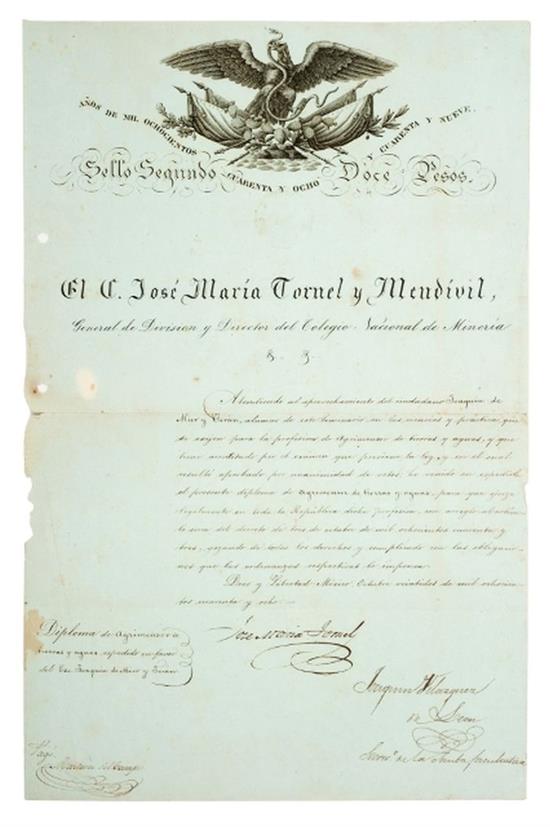 AÑOS DE MIL OCHOCIENTOS CUARENTA Y OCHO Y CUARENTA Y NUEVE.
Sello Segundo Doce Pesos.
El C. José María Tornel y Mendívil,
General de Division y Director del Colegio Nacional de Minería
Atendiendo al aprovechamiento del ciudadano Joaquin de
Mier y Teran, alumno de este Seminario, en las ciencias y práctica que
se exijen para la profesion de Agrimensor de tierras y aguas, y que
tiene acreditado por el ecsámen que previene la ley, y en el cual
resultó aprobado por unanimidad de votos, he venido en espedirle
el presente diploma de agrimensor de tierras y aguas, para que ejerza
legalmente en toda la República dicha profesion, con arreglo al artículo
del decreto de tres de octubre de mil ochocientos cuarenta y
tres, gozando de todos los derechos y cumpliendo con las obligacio-
nes que las ordenanzas respectivas le imponen.
Dios y Libertad México, Octubre veintidos de mil ochocien-
tos cuarenta y ocho.
José María Tornel
Diploma de Agrimensor de
tierras y aguas, espedido en favor
del Joaquin de Mier y Teran
Joaquin Velazquez
de Leon
Secreto. de la Junta facultativa